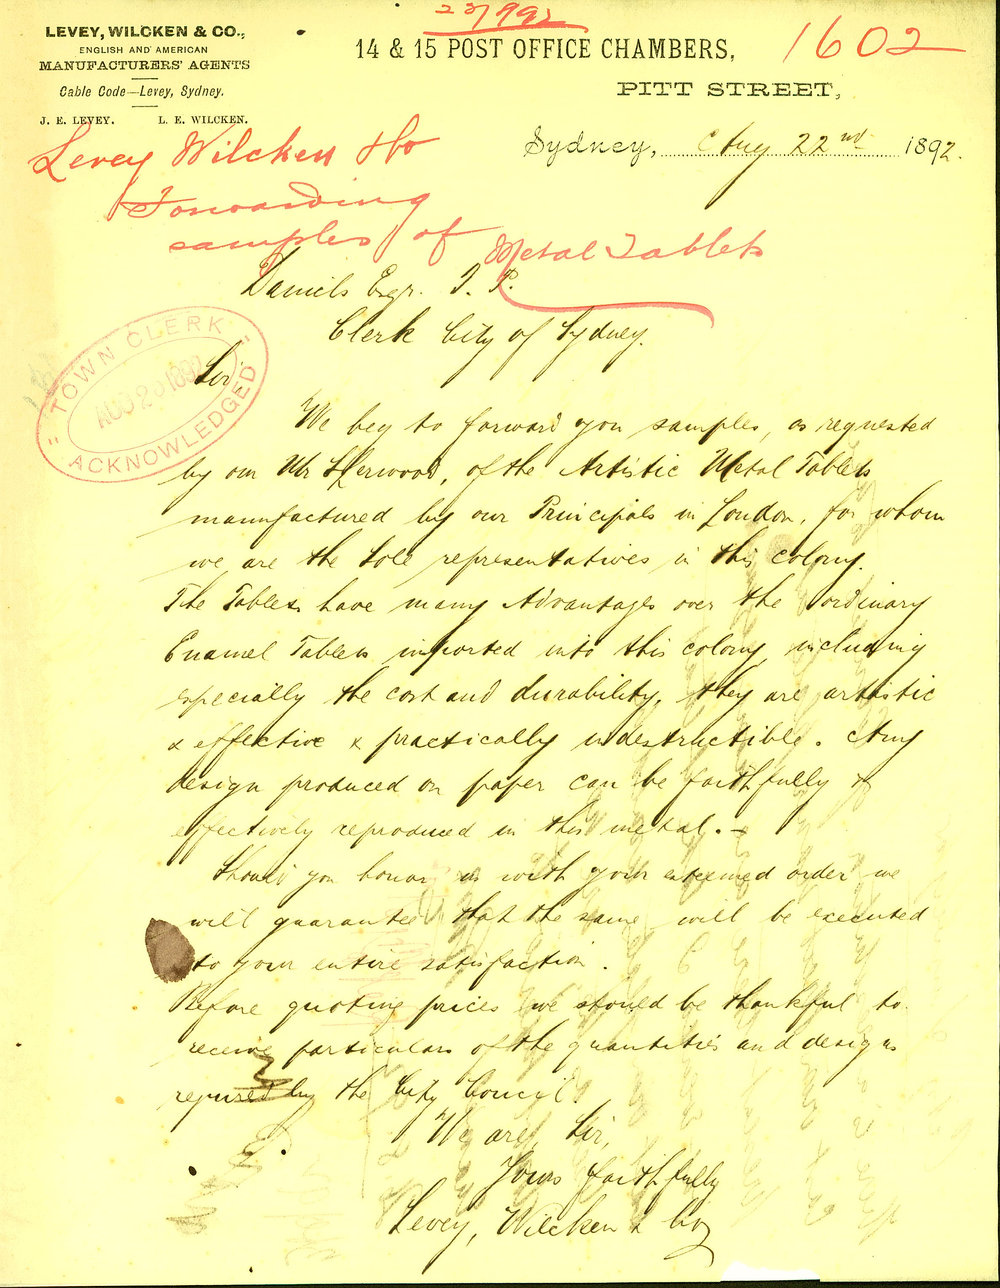 23/992
1602
LEVEY, WILCKEN & CO.,
ENGLISH AND AMERICAN
MANUFACTURERS' AGENTS
Cable Code—Levey, Sydney.
J. E. LEVEY. L. E. WILCKEN.
14 & 15 POST OFFICE CHAMBERS,
PITT STREET,
Sydney, Aug 22nd 1892.
Levey Wilcken & Co
Forwarding
samples of Metal Tablets
Daniels Esqr. J. P.
Clerk City of Sydney.
"TOWN CLERK"
AUG 1892
ACKNOWLEDGED
Sir
We beg to forward you samples, as requested
by our Mr Sherwood, of the Artistic Metal Tablets
manufactured by our Principals in London, for whom
we are the sole representatives in this colony.
The Tablets have many Advantages over the ordinary
Enamel Tablets imported into this colony, including
especially the cost and durability, they are artistic
& effective & practically indestructible. Any
design produced on paper can be faithfully &
effectively reproduced in this metal.—
Should you honor us with your esteemed order we
will guarantee that the same will be executed
to your entire satisfaction.
Before quoting prices we should be thankful to
receive particulars of the quantities and designs
required by the City Council
We are, Sir,
Yours faithfully
Levey, Wilcken & Coy